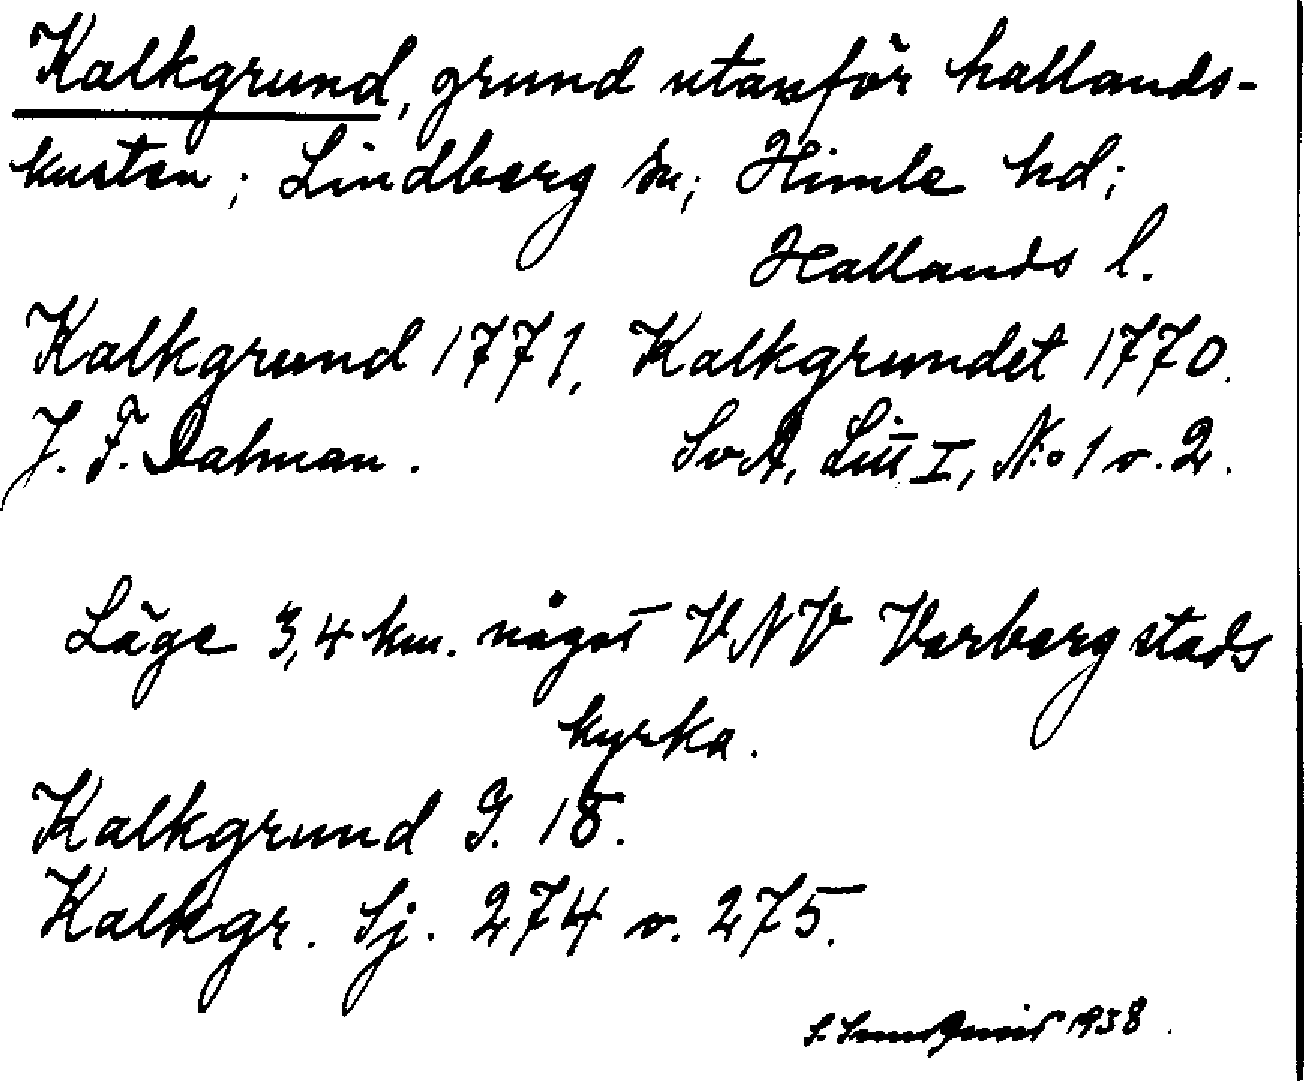 Kalkgrund, grund utanför hallands-
kusten; Lindberg sn; Himle hd;
Hallands l.
Kalkgrund 1771, Kalkgrundet 1770.
J. F. Dalman. SvA, Litt I, N:o 1 o. 2.
Läge 3,4 km. något VNV Varberg stads
kyrka.
Kalkgrund G. 18.
Kalkgr. Sj. 274 o. 275.
1938.